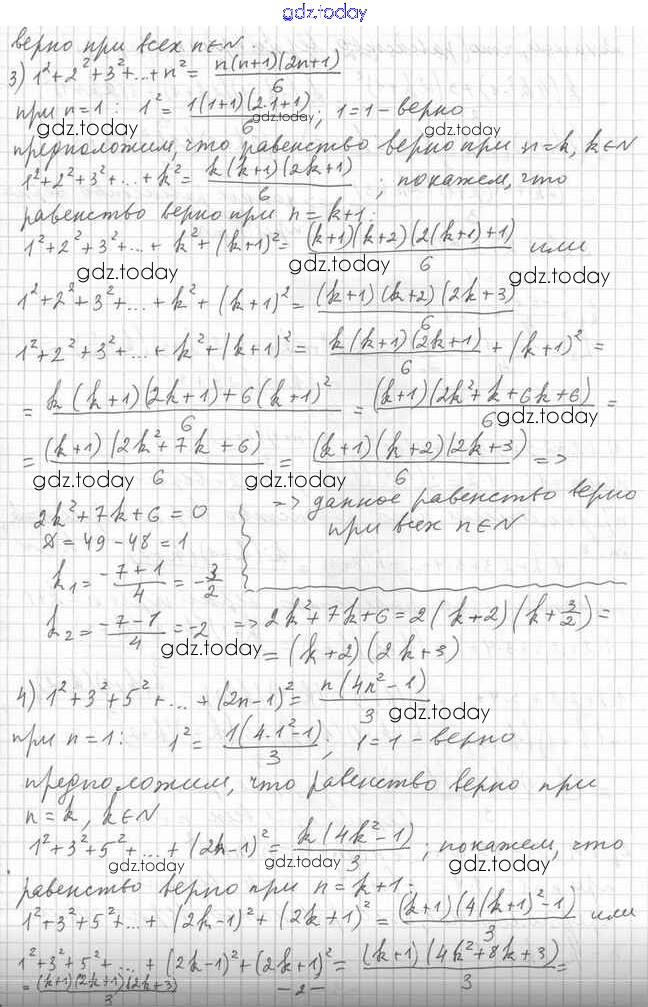 gdz.today
верно при всех n∈N.
3) 1²+2²+3²+...+n² = n(n+1)(2n+1)/6
при n=1: 1² = 1(1+1)(2·1+1)/6; 1=1 – верно
gdz.today gdz.today gdz.today
предположим, что равенство верно при n=k, k∈N
1²+2²+3²+...+k² = k(k+1)(2k+1)/6; покажем, что
равенство верно при n=k+1:
1²+2²+3²+...+k²+(k+1)² = (k+1)(k+2)(2(k+1)+1)/6 или
gdz.today gdz.today gdz.today
1²+2²+3²+...+k²+(k+1)² = (k+1)(k+2)(2k+3)/6
1²+2²+3²+...+k²+(k+1)² = k(k+1)(2k+1)/6 + (k+1)² =
= k(k+1)(2k+1)+6(k+1)²/6 = (k+1)(2k²+k+6k+6)/6 =
gdz.today
= (k+1)(2k²+7k+6)/6 = (k+1)(k+2)(2k+3)/6 =>
gdz.today gdz.today gdz.today
=> данное равенство верно
при всех n∈N
2k²+7k+6=0
D=49-48=1
k₁ = -7+1/4 = -3/2
k₂ = -7-1/4 = -2 => 2k²+7k+6=2(k+2)(k+3/2)=
gdz.today
=(k+2)(2k+3)
4) 1²+3²+5²+...+(2n-1)² = n(4n²-1)/3
gdz.today
при n=1: 1² = 1(4·1²-1)/3; 1=1 – верно
предположим, что равенство верно при
n=k, k∈N
1²+3²+5²+...+(2k-1)² = k(4k²-1)/3; покажем, что
gdz.today gdz.today gdz.today
равенство верно при n=k+1:
1²+3²+5²+...+(2k-1)²+(2k+1)² = (k+1)(4(k+1)²-1)/3 или
1²+3²+5²+...+(2k-1)²+(2k+1)² = (k+1)(4k²+8k+3)/3 =
= (k+1)(2k+1)(2k+3)/3
-2-